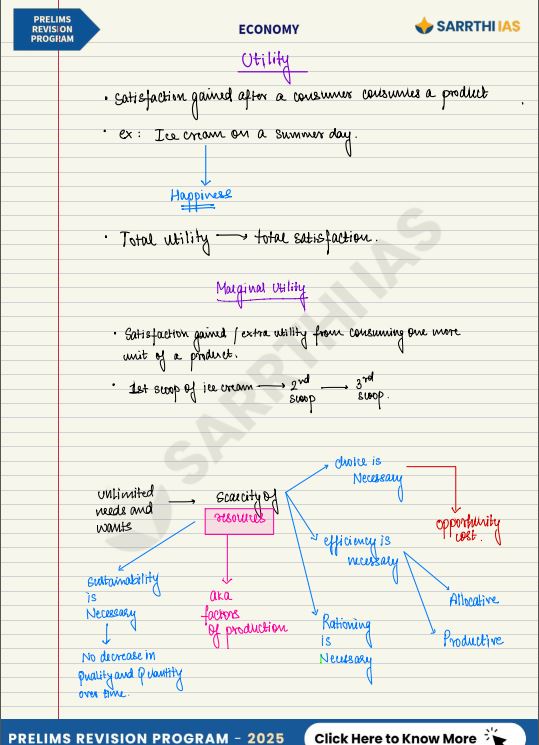 PRELIMS
REVISION
PROGRAM
ECONOMY
SARRTHI IAS
Utility
• Satisfaction gained after a consumer consumes a product
• ex: Ice cream on a summer day.
Happiness
• Total utility → total satisfaction.
Marginal Utility
• Satisfaction gained / extra utility from consuming one more
unit of a product.
• 1st scoop of ice cream → 2nd scoop → 3rd scoop.
Unlimited
needs and
wants
→
Scarcity of
resources
choice is
Necessary
opportunity
cost.
efficiency is
necessary
Allocative
Productive
Rationing
is
Necessary
aka
factors
of production
Sustainability
is
Necessary
No decrease in
Quality and Quantity
over time.
SARRTHI IAS
PRELIMS REVISION PROGRAM - 2025
Click Here to Know More